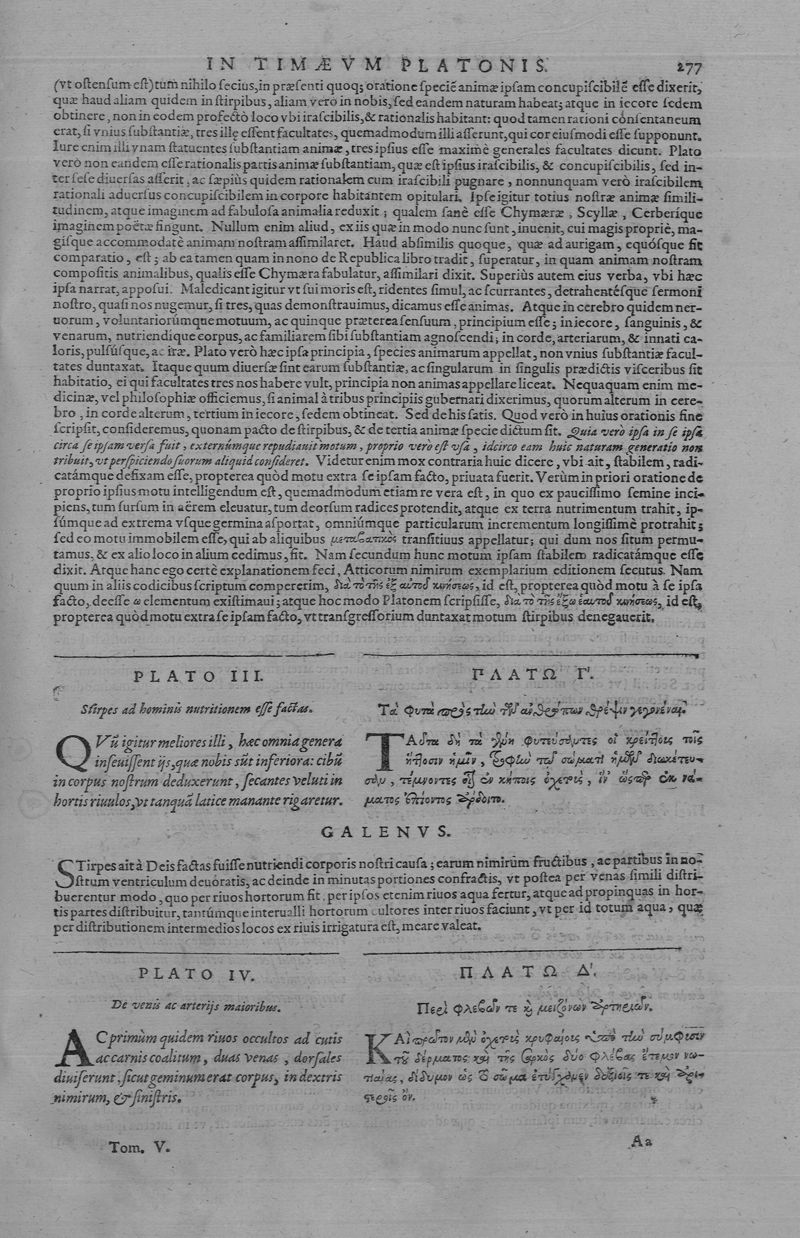 IN TIMÆVM PLATONIS. 277
(vt ostensum est) tum nihilo secius, in præsenti quoq; oratione speciẽ animæ ipsam concupiscibilẽ esse dixerit,
quæ haud aliam quidem in stirpibus, aliam verò in nobis, sed eandem naturam habeat; atque in iecore sedem
obtinere, non in eodem profectò loco vbi irascibilis, & rationalis habitant: quod tamen rationi consentaneum
erat, si vnius substantiæ, tres illę essent facultates, quemadmodum illi asserunt, qui cor eiusmodi esse supponunt.
Iure enim illi vnam statuentes substantiam animæ, tres ipsius esse maximè generales facultates dicunt. Plato
verò non eandem esse rationalis partis animæ substantiam, quæ est ipsius irascibilis, & concupiscibilis, sed in-
ter sese diuersas asserit, ac sæpiùs quidem rationalem cum irascibili pugnare, nonnunquam verò irascibilem
rationali aduersus concupiscibilem in corpore habitantem opitulari. Ipse igitur totius nostræ animæ simili-
tudinem, atque imaginem ad fabulosa animalia reduxit; qualem sanè esse Chymæræ, Scyllæ, Cerberíque
imaginem poëtæ fingunt. Nullum enim aliud, ex iis quæ in modo nunc sunt, inuenit, cui magis propriè, ma-
gisque accommodatè animam nostram assimilaret. Haud absimilis quoque, quæ ad aurigam, equósque fit
comparatio, est; ab ea tamen quam in nono de Republica libro tradit, superatur, in quam animam nostram
compositis animalibus, qualis esse Chymæra fabulatur, assimilari dixit. Superiùs autem eius verba, vbi hæc
ipsa narrat, apposui. Maledicant igitur vt sui moris est, ridentes simul, ac scurrantes, detrahentésque sermoni
nostro, quasi nos nugemur, si tres, quas demonstrauimus, dicamus esse animas. Atque in cerebro quidem ner-
uorum, voluntariorúmque motuum, ac quinque præterea sensuum, principium esse; in iecore, sanguinis, &
venarum, nutriendique corpus, ac familiarem sibi substantiam agnoscendi; in corde, arteriarum, & innati ca-
loris, pulsúsque, ac iræ. Plato verò hæc ipsa principia, species animarum appellat, non vnius substantiæ facul-
tates duntaxat. Itaque quum diuersæ sint earum substantiæ, ac singularum in singulis prædictis visceribus sit
habitatio, ei qui facultates tres nos habere vult, principia non animas appellare liceat. Nequaquam enim me-
dicinæ, vel philosophiæ officiemus, si animal à tribus principiis gubernari dixerimus, quorum alterum in cere-
bro, in corde alterum, tertium in iecore, sedem obtineat. Sed de his satis. Quod verò in huius orationis fine
scripsit, consideremus, quonam pacto de stirpibus, & de tertia animæ specie dictum sit. Quia verò ipsa in se ipsa
circa se ipsam versa fuit, externúmque repudiauit motum, proprio verò est vsa, idcirco eam huic naturam generatio non
tribuit, vt perspiciendo suorum aliquid consideret. Videtur enim mox contraria huic dicere, vbi ait, stabilem, radi-
catámque defixam esse, propterea quòd motu extra se ipsam facto, priuata fuerit. Verùm in priori oratione de
proprio ipsius motu intelligendum est, quemadmodum etiam re vera est, in quo ex paucissimo semine inci-
piens, tum sursum in aërem eleuatur, tum deorsum radices protendit, atque ex terra nutrimentum trahit, ip-
súmque ad extrema vsque germina asportat, omniúmque particularum incrementum longissimè protrahit;
sed eo motu immobilem esse, qui ab aliquibus μεταβατικὸς transitiuus appellatur; qui dum nos situm permu-
tamus, & ex alio loco in alium cedimus, fit. Nam secundum hunc motum ipsam stabilem radicatámque esse
dixit. Atque hanc ego certè explanationem feci, Atticorum nimirum exemplarium editionem secutus. Nam
quum in aliis codicibus scriptum compererim, διὰ τὸ τῆς ἐξ αὐτοῦ κινήσεως, id est, propterea quòd motu à se ipsa
facto, deesse ω elementum existimaui; atque hoc modo Platonem scripsisse, διὰ τὸ τῆς ἔξω ἑαυτοῦ κινήσεως, id est,
propterea quòd motu extra se ipsam facto, vt transgressorium duntaxat motum stirpibus denegauerit.
PLATO III.
Stirpes ad hominis nutritionem esse factas.
QVũ igitur meliores illi, hæc omnia genera
inseuissent ijs, quæ nobis sũt inferiora: cibũ
in corpus nostrum deduxerunt, secantes veluti in
hortis riuulos, vt tanquã latice manante rigaretur.
ΠΛΑΤΩ Γ'.
Τὰ φυτὰ πρὸς τὴν τῶν ἀνθρώπων θρέψιν γεγονέναι.
ΤΑῦτα δὴ τὰ γένη φυτεύσαντες οἱ κρείττους τοῖς
ἥττοσιν ἡμῖν, τροφὴν τοῦ σώματι ἡμῶν διωχέτευ-
σαν, τέμνοντες οἷον ἐν κήποις ὀχετοὺς, ἵν' ὥσπερ ἐκ νά-
ματος ἐπιόντος ἄρδοιτο.
GALENVS.
STirpes ait à Deis factas fuisse nutriendi corporis nostri causa; earum nimirum fructibus, ac partibus in no-
strum ventriculum deuoratis, ac deinde in minutas portiones confractis, vt postea per venas simili distri-
buerentur modo, quo per riuos hortorum fit. per ipsos etenim riuos aqua fertur, atque ad propinquas in hor-
tis partes distribuitur, tantúmque interualli hortorum cultores inter riuos faciunt, vt per id totum aqua, quæ
per distributionem intermedios locos ex riuis irrigatura est, meare valeat.
PLATO IV.
De venis ac arterijs maioribus.
AC primùm quidem riuos occultos ad cutis
ac carnis coalitum, duas venas, dorsales
diuiserunt, sicut geminum erat corpus, in dextris
nimirum, & sinistris.
ΠΛΑΤΩ Δ'.
Περὶ φλεβῶν τε καὶ μειζόνων ἀρτηριῶν.
ΚΑὶ πρῶτον μὲν ὀχετοὺς κρυφαίους ὑπὸ τὴν σύμφυσιν
τοῦ δέρματος καὶ τῆς σαρκὸς δύο φλέβας ἔτεμον νω-
τιαίας, δίδυμον ὡς τὸ σῶμα ἐτύγχανεν δεξιοῖς τε καὶ ἀρι-
στεροῖς ὄν.
Tom. V. Aa